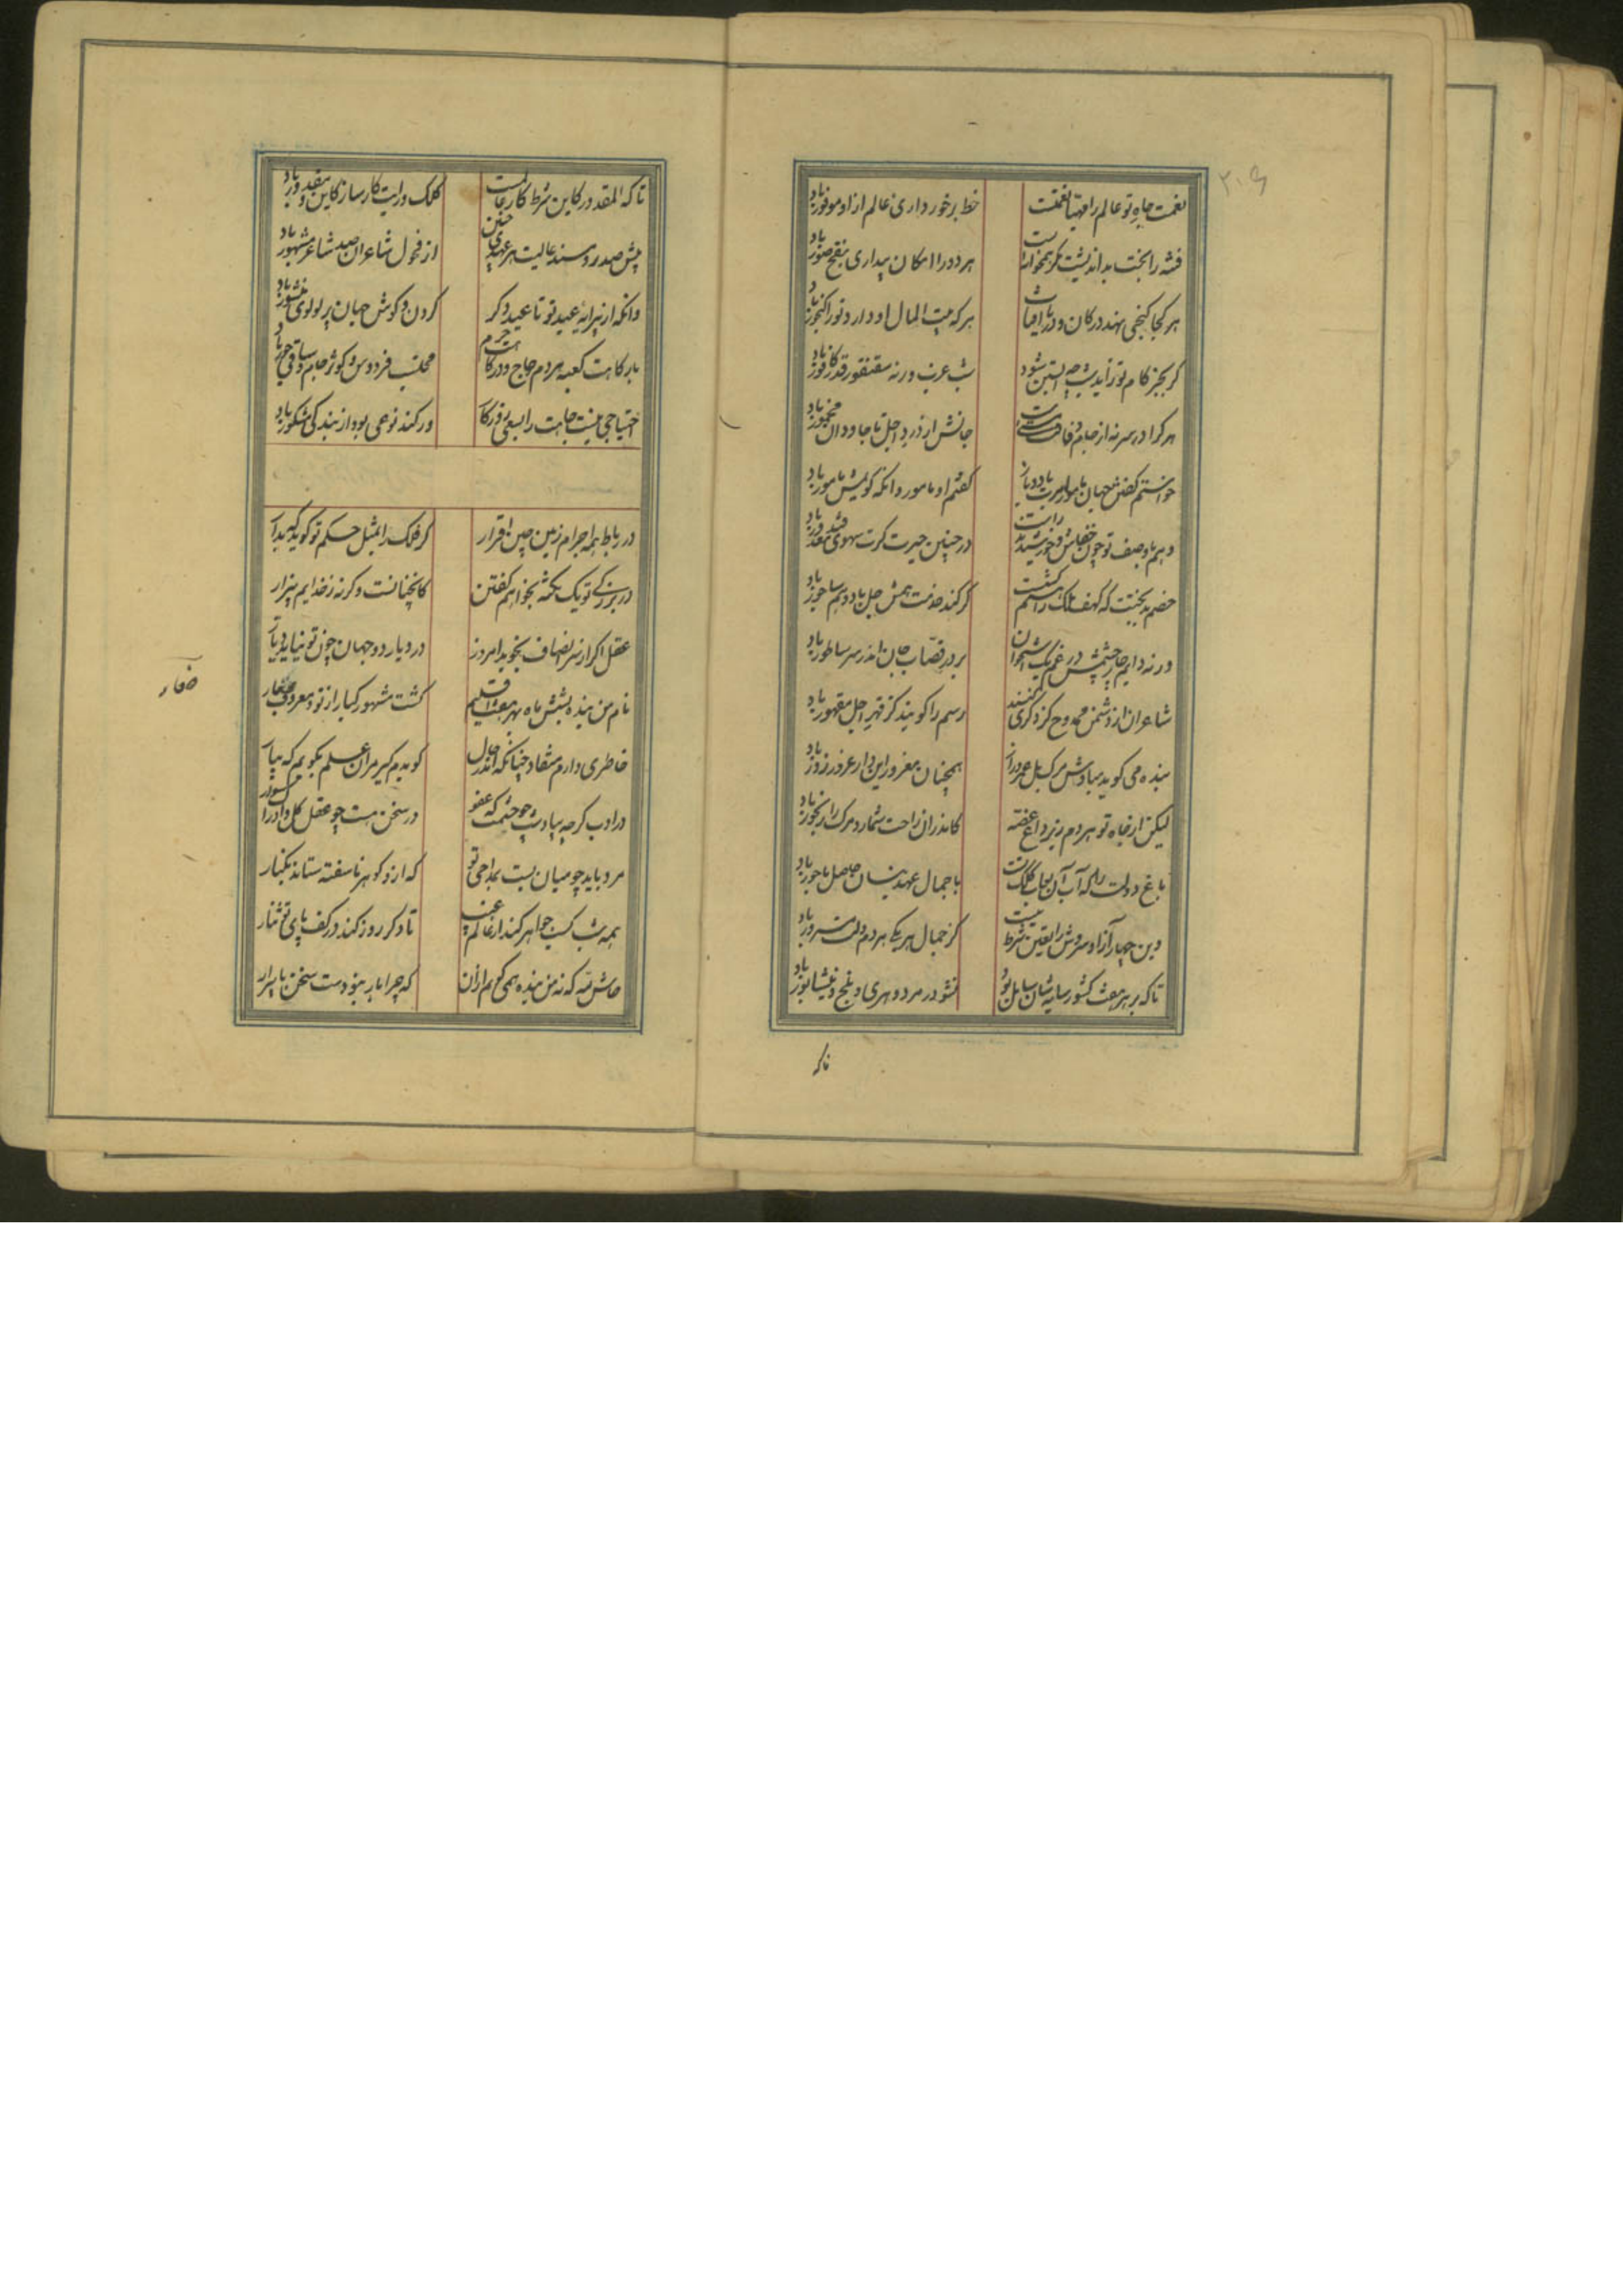 ۲۰۶
نعمت جاه تو عالم را مهیا نعمتست حظ برخورداری عالم ازو موفور باد
فتنه را بخت بداندیشت مگر همخوابه است هر دو را امکان بیداری بنفخ صور باد
هر کجا گنجی نهد در کان و دریا آفتاب هر که بیت المال او دارد تو را گنجور باد
گر بجز کام تو زاید شب چو آبستن شود شب عزب ورنه سقنقور قدر کافور باد
هر کرا در سر نه از جام وفاقت مستیست جانش از درد اجل تا جاودان مخمور باد
خواستم گفتن جهان مامور امرت باد و باز گفتم او مامور و آنکه گویمش مامور باد
وهم با وصف تو چون خفاش و خورشید در چنین حیرت گرت سهوی فتد معذور باد
خصم بدبختت که کهف ملک را گر کند خدمت همش جل باد و هم ساجور باد
ورنه دایم چار چشمش در غم یک استخوان بر در قصاب جان اندر سر ساطور باد
شاعران از دشمن ممدوح گر ذکری کنند رسم را گویند کز قهر اجل مقهور باد
بنده می گوید مبادش مرگ بل عمر دراز همچنان مغرور این دار غرور زور باد
لیکن از جاه تو هر دم زیر داغ غصه کاندران راحت شمارد مرگ را رنجور باد
باغ دولت را که آب آن لعاب کلک تست با جمال عهد نیسان حاصل باحور باد
وین چهار آزاد سروش را تعیین شرط نیست کز جمال هر یکی هر دم دلت مسرور باد
تا که بر هر هفت کشور سایه شان سایل بود نشو در مرو و هری و بلخ و نیشابور باد
تا که
تا که المقدور کاین شرط کار عالمست کلک و رایت کارساز کاین و مقدور باد
پیش صدر و مسند عالیت هر عیدی چنین از فحول شاعران صد شاعر مشهور باد
وانگه از پیرایه عید تو تا عید دگر گردن و گوش جهان پر لولوی منثور باد
بارگاهت کعبه مردم حاج و درگاهت حرم مجلست فردوس و کوثر جام و ساقی حور باد
احتیاجی نیست جاهت را بسعی روزگار ور کند نوعی بود از بندگی مشکور باد
در رباط همه اجرام زمین چین اقرار گر فلک را بمثل حکم تو گوید که بدار
در بزرگی تو یک نکته بخواهم گفتن کانچنانست وگرنه ز خدایم بیزار
عقل اگر از سر انصاف بجوید امروز در دیار دو جهان چون تو نیابد دیار
نام من بنده بشش ماه بهر هفت اقلیم گشت مشهور کبار از تو و معروف صغار
صغار
خاطری دارم منقاد چنانک اندر حال گویدم گیر مران علم که گویم که بیار
در ادب گرچه پیادست چو خشمت که عفو در سخن هست چو عقل کل و ادراک سوار
مرد باید چو میان بست بمداحی تو که ازو گوهر ناسفته ستانند بکنار
همه شب کسب جواهر کند از عالم غیب تا دگر روز کند در کف پای تو نثار
حاش لله که نه من بنده همی گویم ازان که چرا بار نبودست سخن با بسیار